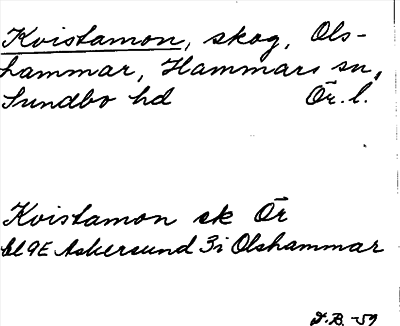 Kvistamon, skog, Ols-
hammar, Hammars sn,
Sundbo hd Ör. l.
Kvistamon sk Ör
bl 9E Askersund 3i Olshammar
J.B. -59